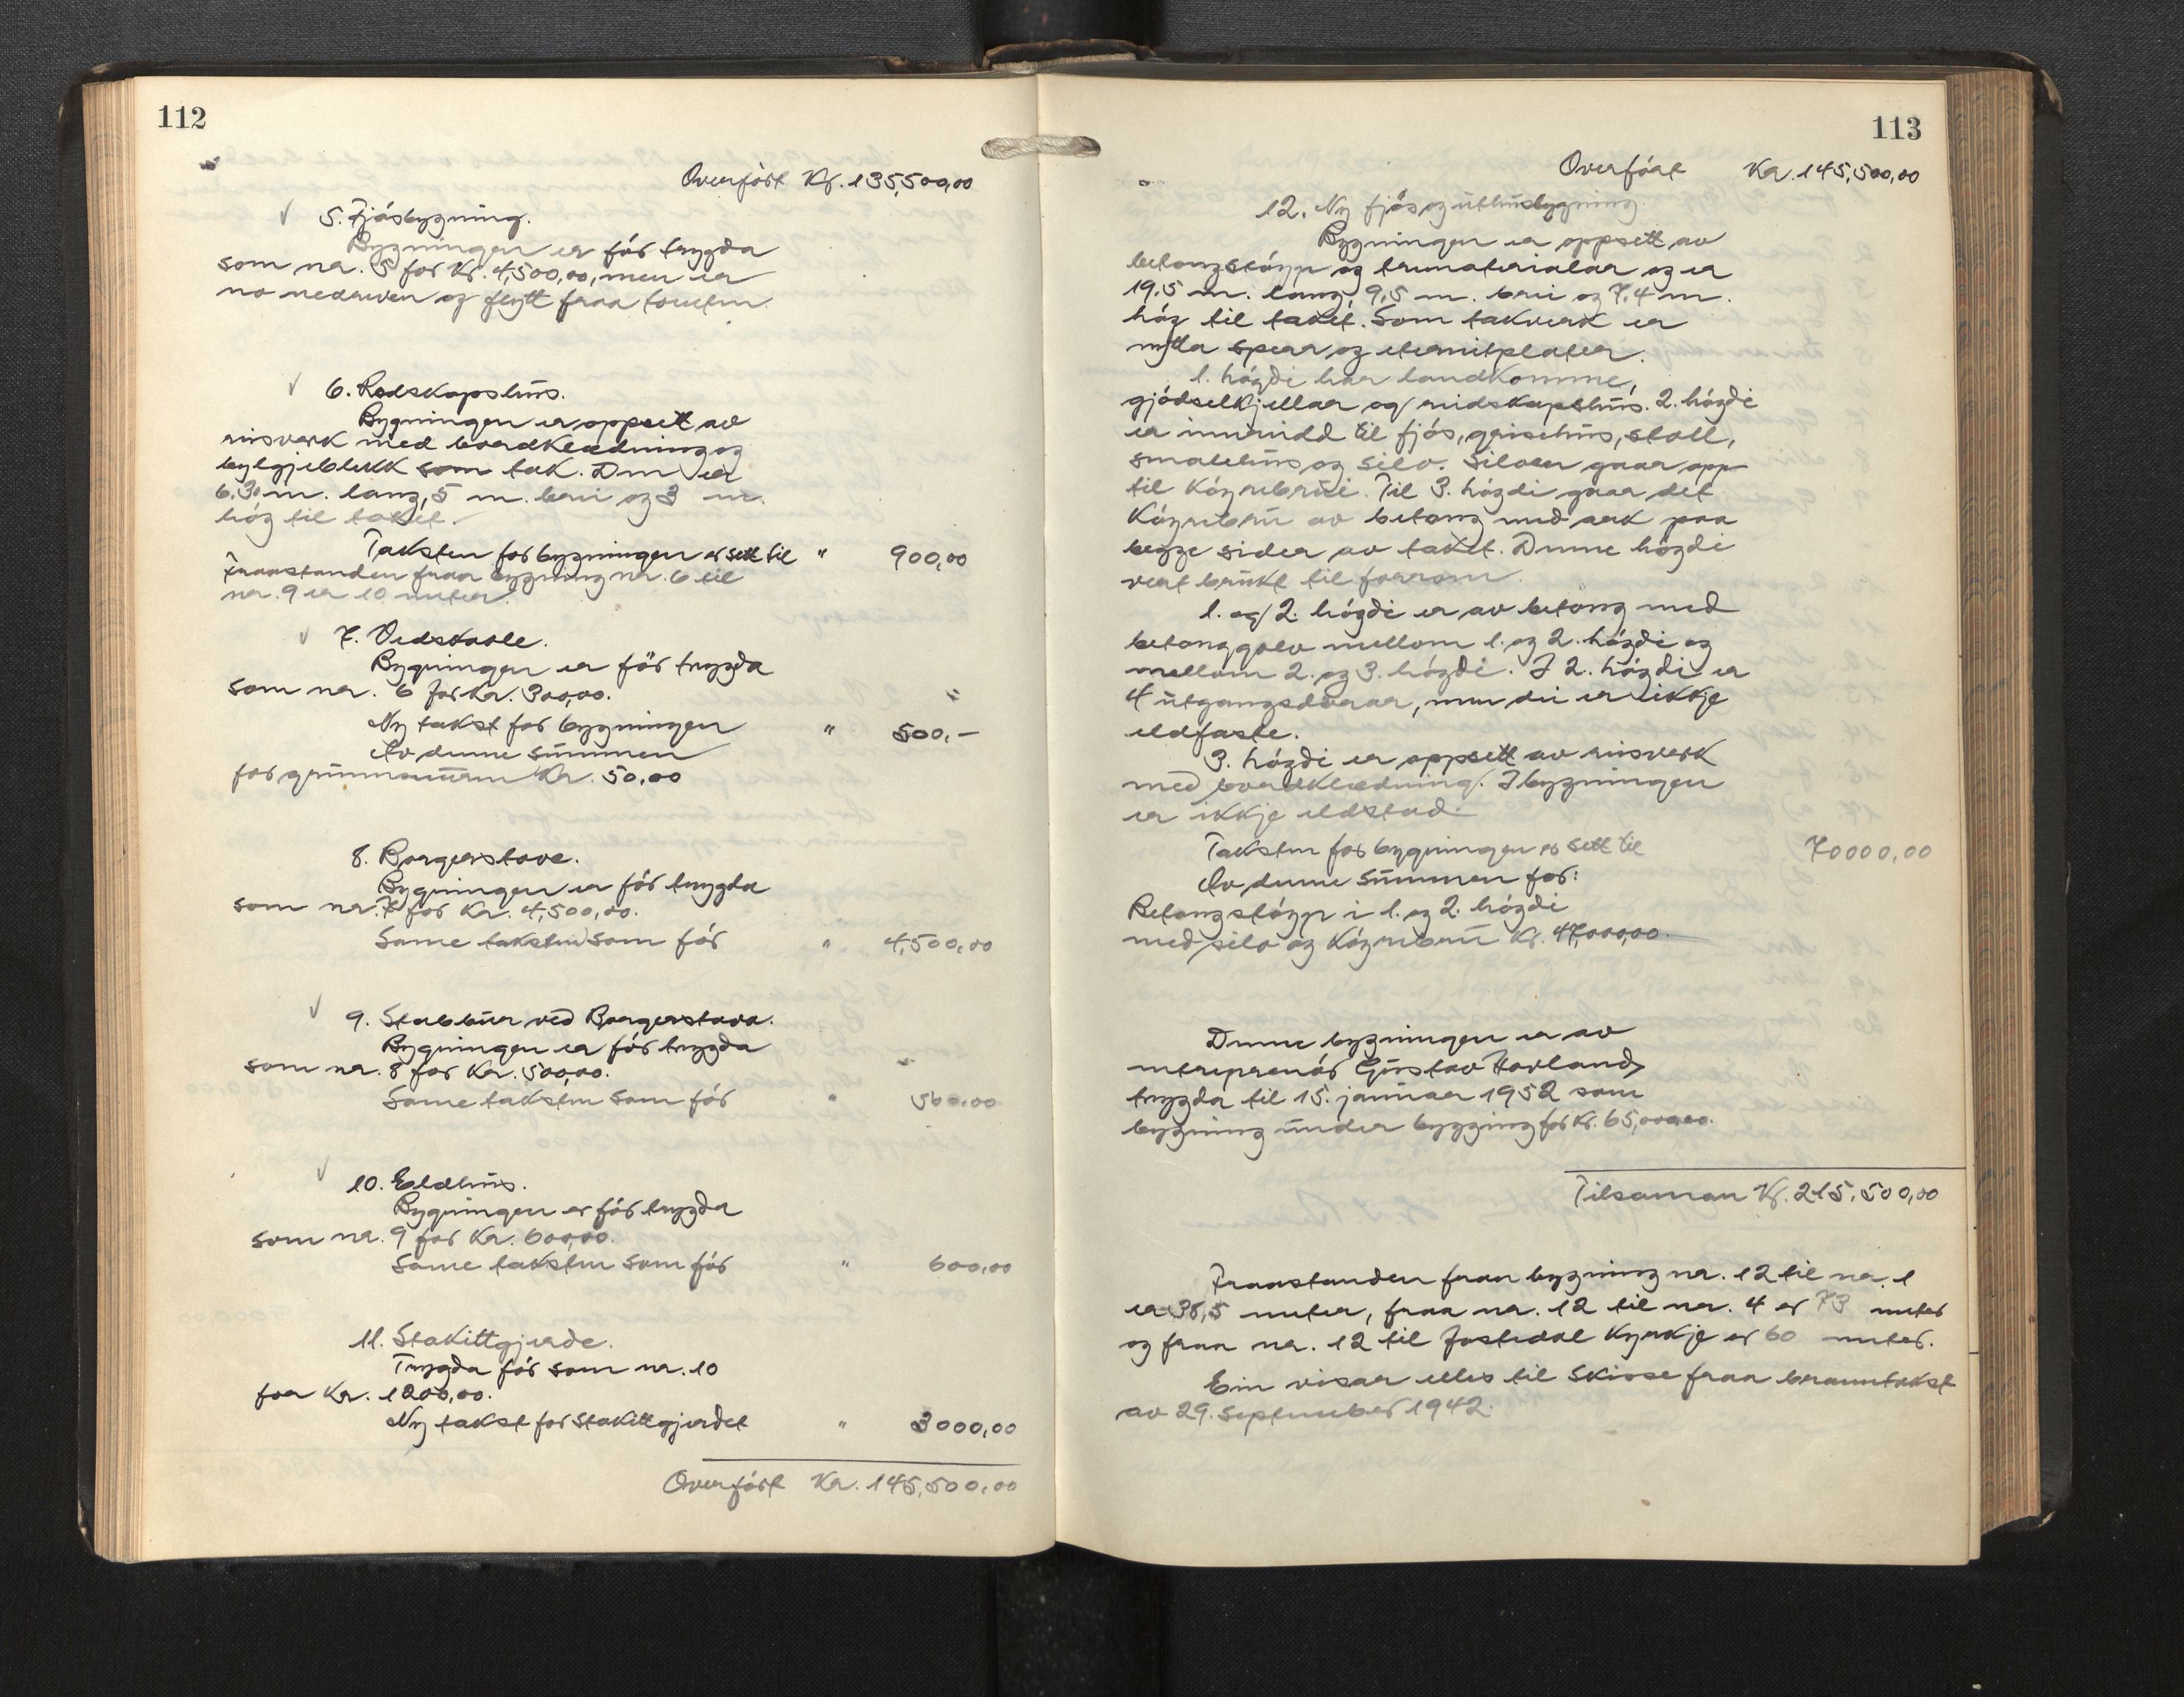 112
Overført Kr. 135,500,00
5. Fjøsbygning.
Bygningen er før trygda
som nr. 5 for Kr. 4,500,00, men er
no nedriven og flytt fraa tomten.
6. Redskapshus.
Bygningen er oppsett av
reisverk med bordklædning og
bylgjeblekk som tak. Den er
6,30 m. lang, 5 m. brei og 3 m.
høg til taket.
Taksten for bygningen er sett til " 900,00
Fraastanden fraa bygning nr. 6 til
nr. 9 er 10 meter.
7. Vedskaale.
Bygningen er før trygda
som nr. 6 for Kr. 300,00.
Ny takst for bygningen " 500,-
Av denne summen
for grunnmuren Kr. 50,00
8. Borgerstove.
Bygningen er før trygda
som nr. 7 for Kr. 4,500,00.
Same taksten som før " 4,500,00
9. Stabbur ved Borgerstova.
Bygningen er før trygda
som nr. 8 for Kr. 500,00.
Same taksten som før " 500,00
10. Eldhus.
Bygningen er før trygda
som nr. 9 for Kr. 600,00.
Same taksten som før " 600,00
11. Stakittgjerde.
Trygda før som nr. 10
for Kr. 1200,00.
Ny takst for stakittgjerdet " 3000,00
Overført Kr. 145,500,00
113
Overført Kr. 145,500,00
12. Ny fjøs og uthusbygning
Bygningen er oppsett av
betongstøyp og trematerialar og er
19,5 m. lang, 9,5 m. brei og 7,4 m.
høg til taket. Som takverk er
nytta sperr og eternitplater.
1. høgdi har landkomme,
gjødselkjellar og reidskapshus. 2. høgdi
er innreidd til fjøs, grisehus, stall,
smalehus og silo. Siloen gaar opp
til Køyrebrui. Til 3. høgdi gaar det
Køyrebru av betong med ark paa
begge sider av taket. Denne høgdi
vert brukt til forrom.
1. og 2. høgdi er av betong med
betonggolv mellom 1. og 2. høgdi og
mellom 2. og 3. høgdi. I 2. høgdi er
4 utgangsdørar, men dei er ikkje
eldfaste.
3. høgdi er oppsett av reisverk
med bordklædning. I bygningen
er ikkje eldstad.
Taksten for bygningen er sett til 70000,00
Av denne summen for:
Betongstøyp i 1. og 2. høgdi
med silo og Køyrebru Kr. 47,000,00.
Denne bygningen er av
entreprenør Gustav Hovland,
trygda til 15. januar 1952 som
bygning under bygging for Kr. 65,000,00.
Tilsaman Kr. 215,500,00
Fraastanden fraa bygning nr. 12 til nr. 1
er 38,5 meter, fraa nr. 12 til nr. 4 er 73 meter
og fraa nr. 12 til Jostedal Kyrkje er 60 meter.
Ein visar elles til Skisse fraa branntakst
av 29. September 1942.